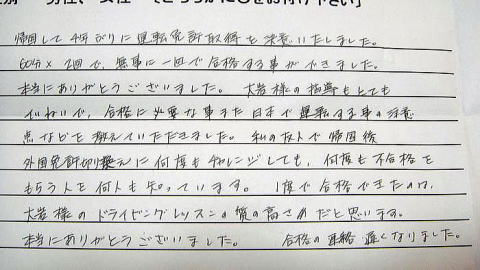 男性、女性 どちらかに○をお付け下さい
帰国して4年ぶりに運転免許取得を決意いたしました。
60分×2回で、無事に一回で合格する事ができました。
本当にありがとうございました。大岩様の指導もとても
ていねいで、合格に必要な事また日本で運転する事の注意
点などを教えていただきました。私の友人で帰国後
外国免許切り換えに何度もチャレンジしても、何度も不合格を
もらう人を何人も知っています。1度で合格できたのは、
大岩様のドライビングレッスンの質の高さ故だと思います。
本当にありがとうございました。 合格の連絡遅くなりました。